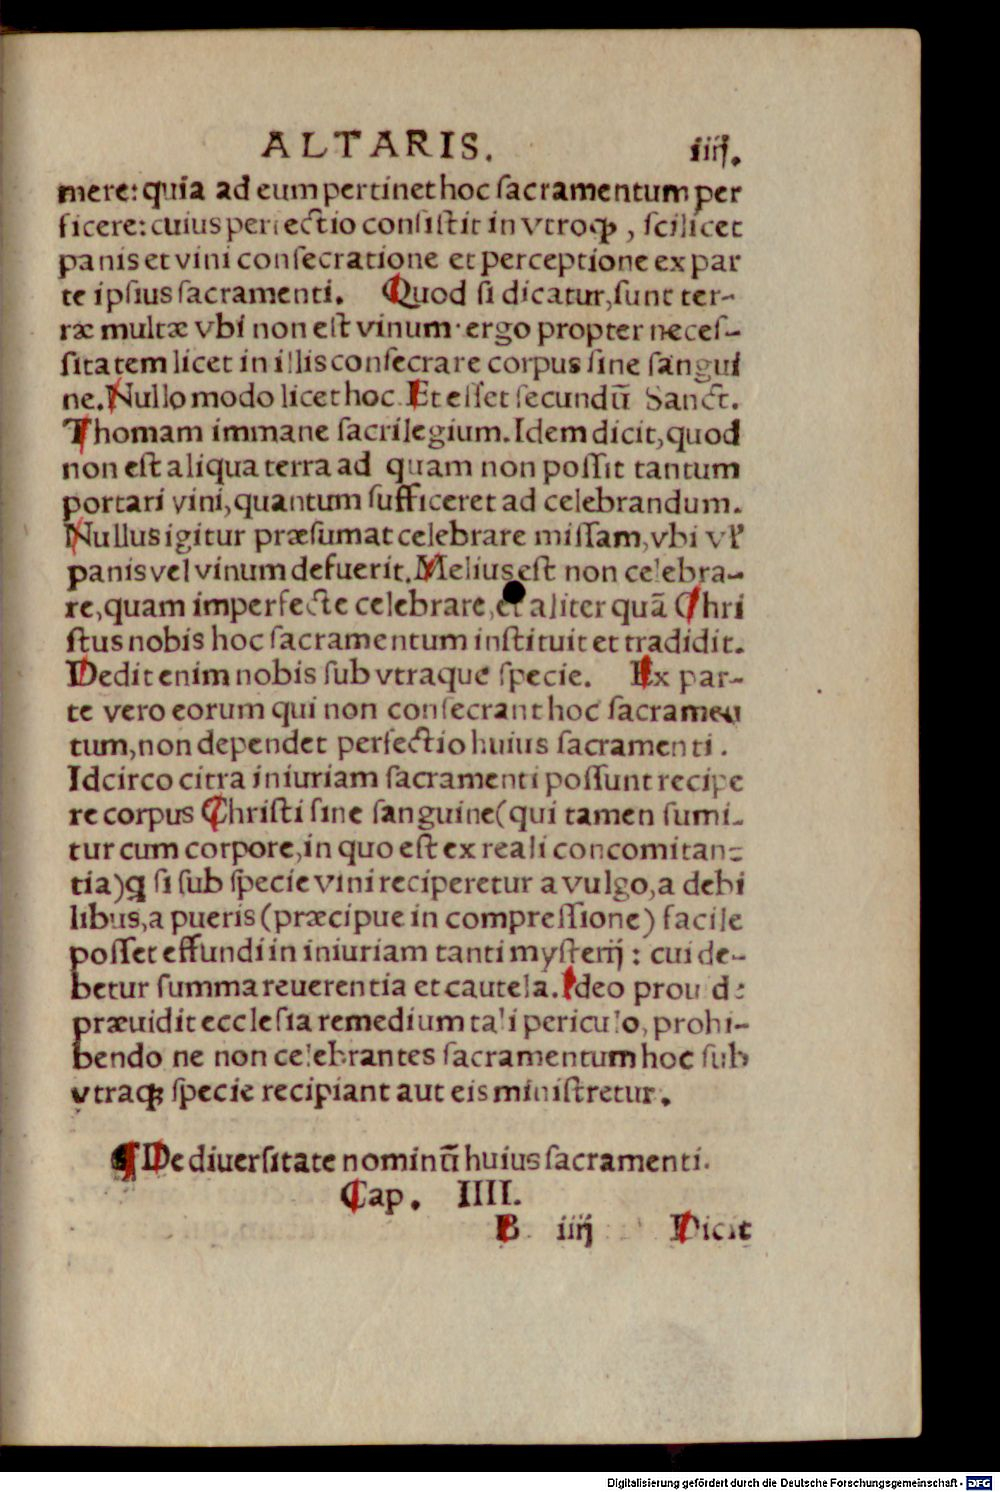 ALTARIS. iiij.
mere: quia ad eum pertinet hoc sacramentum per
ficere: cuius perfectio consistit in vtroqꝫ, scilicet
panis et vini consecratione et perceptione ex par
te ipsius sacramenti. Quod si dicatur, sunt ter-
ræ multæ vbi non est vinum· ergo propter neces-
sitatem licet in illis consecrare corpus sine sangui
ne. Nullo modo licet hoc. Et esset secundū Sanct.
Thomam immane sacrilegium. Idem dicit, quod
non est aliqua terra ad quam non possit tantum
portari vini, quantum sufficeret ad celebrandum.
Nullus igitur præsumat celebrare missam, vbi vl'
panis vel vinum defuerit. Melius est non celebra-
re, quam imperfecte celebrare, et aliter quā Chri
stus nobis hoc sacramentum instituit et tradidit.
Dedit enim nobis sub vtraque specie. Ex par-
te vero eorum qui non consecrant hoc sacramen
tum, non dependet perfectio huius sacramenti.
Idcirco citra iniuriam sacramenti possunt recipe
re corpus Christi sine sanguine (qui tamen sumi-
tur cum corpore, in quo est ex reali concomitan-
tia) q̨ si sub specie vini reciperetur a vulgo, a debi
libus, a pueris (præcipue in compressione) facile
posset effundi in iniuriam tanti mysterij: cui de-
betur summa reuerentia et cautela. Ideo prouide
præuidit ecclesia remedium tali periculo, prohi-
bendo ne non celebrantes sacramentum hoc sub
vtraqꝫ specie recipiant aut eis ministretur.
¶ De diuersitate nominū huius sacramenti.
Cap. IIII.
B iiij Dicit
Digitalisierung gefördert durch die Deutsche Forschungsgemeinschaft - DFG